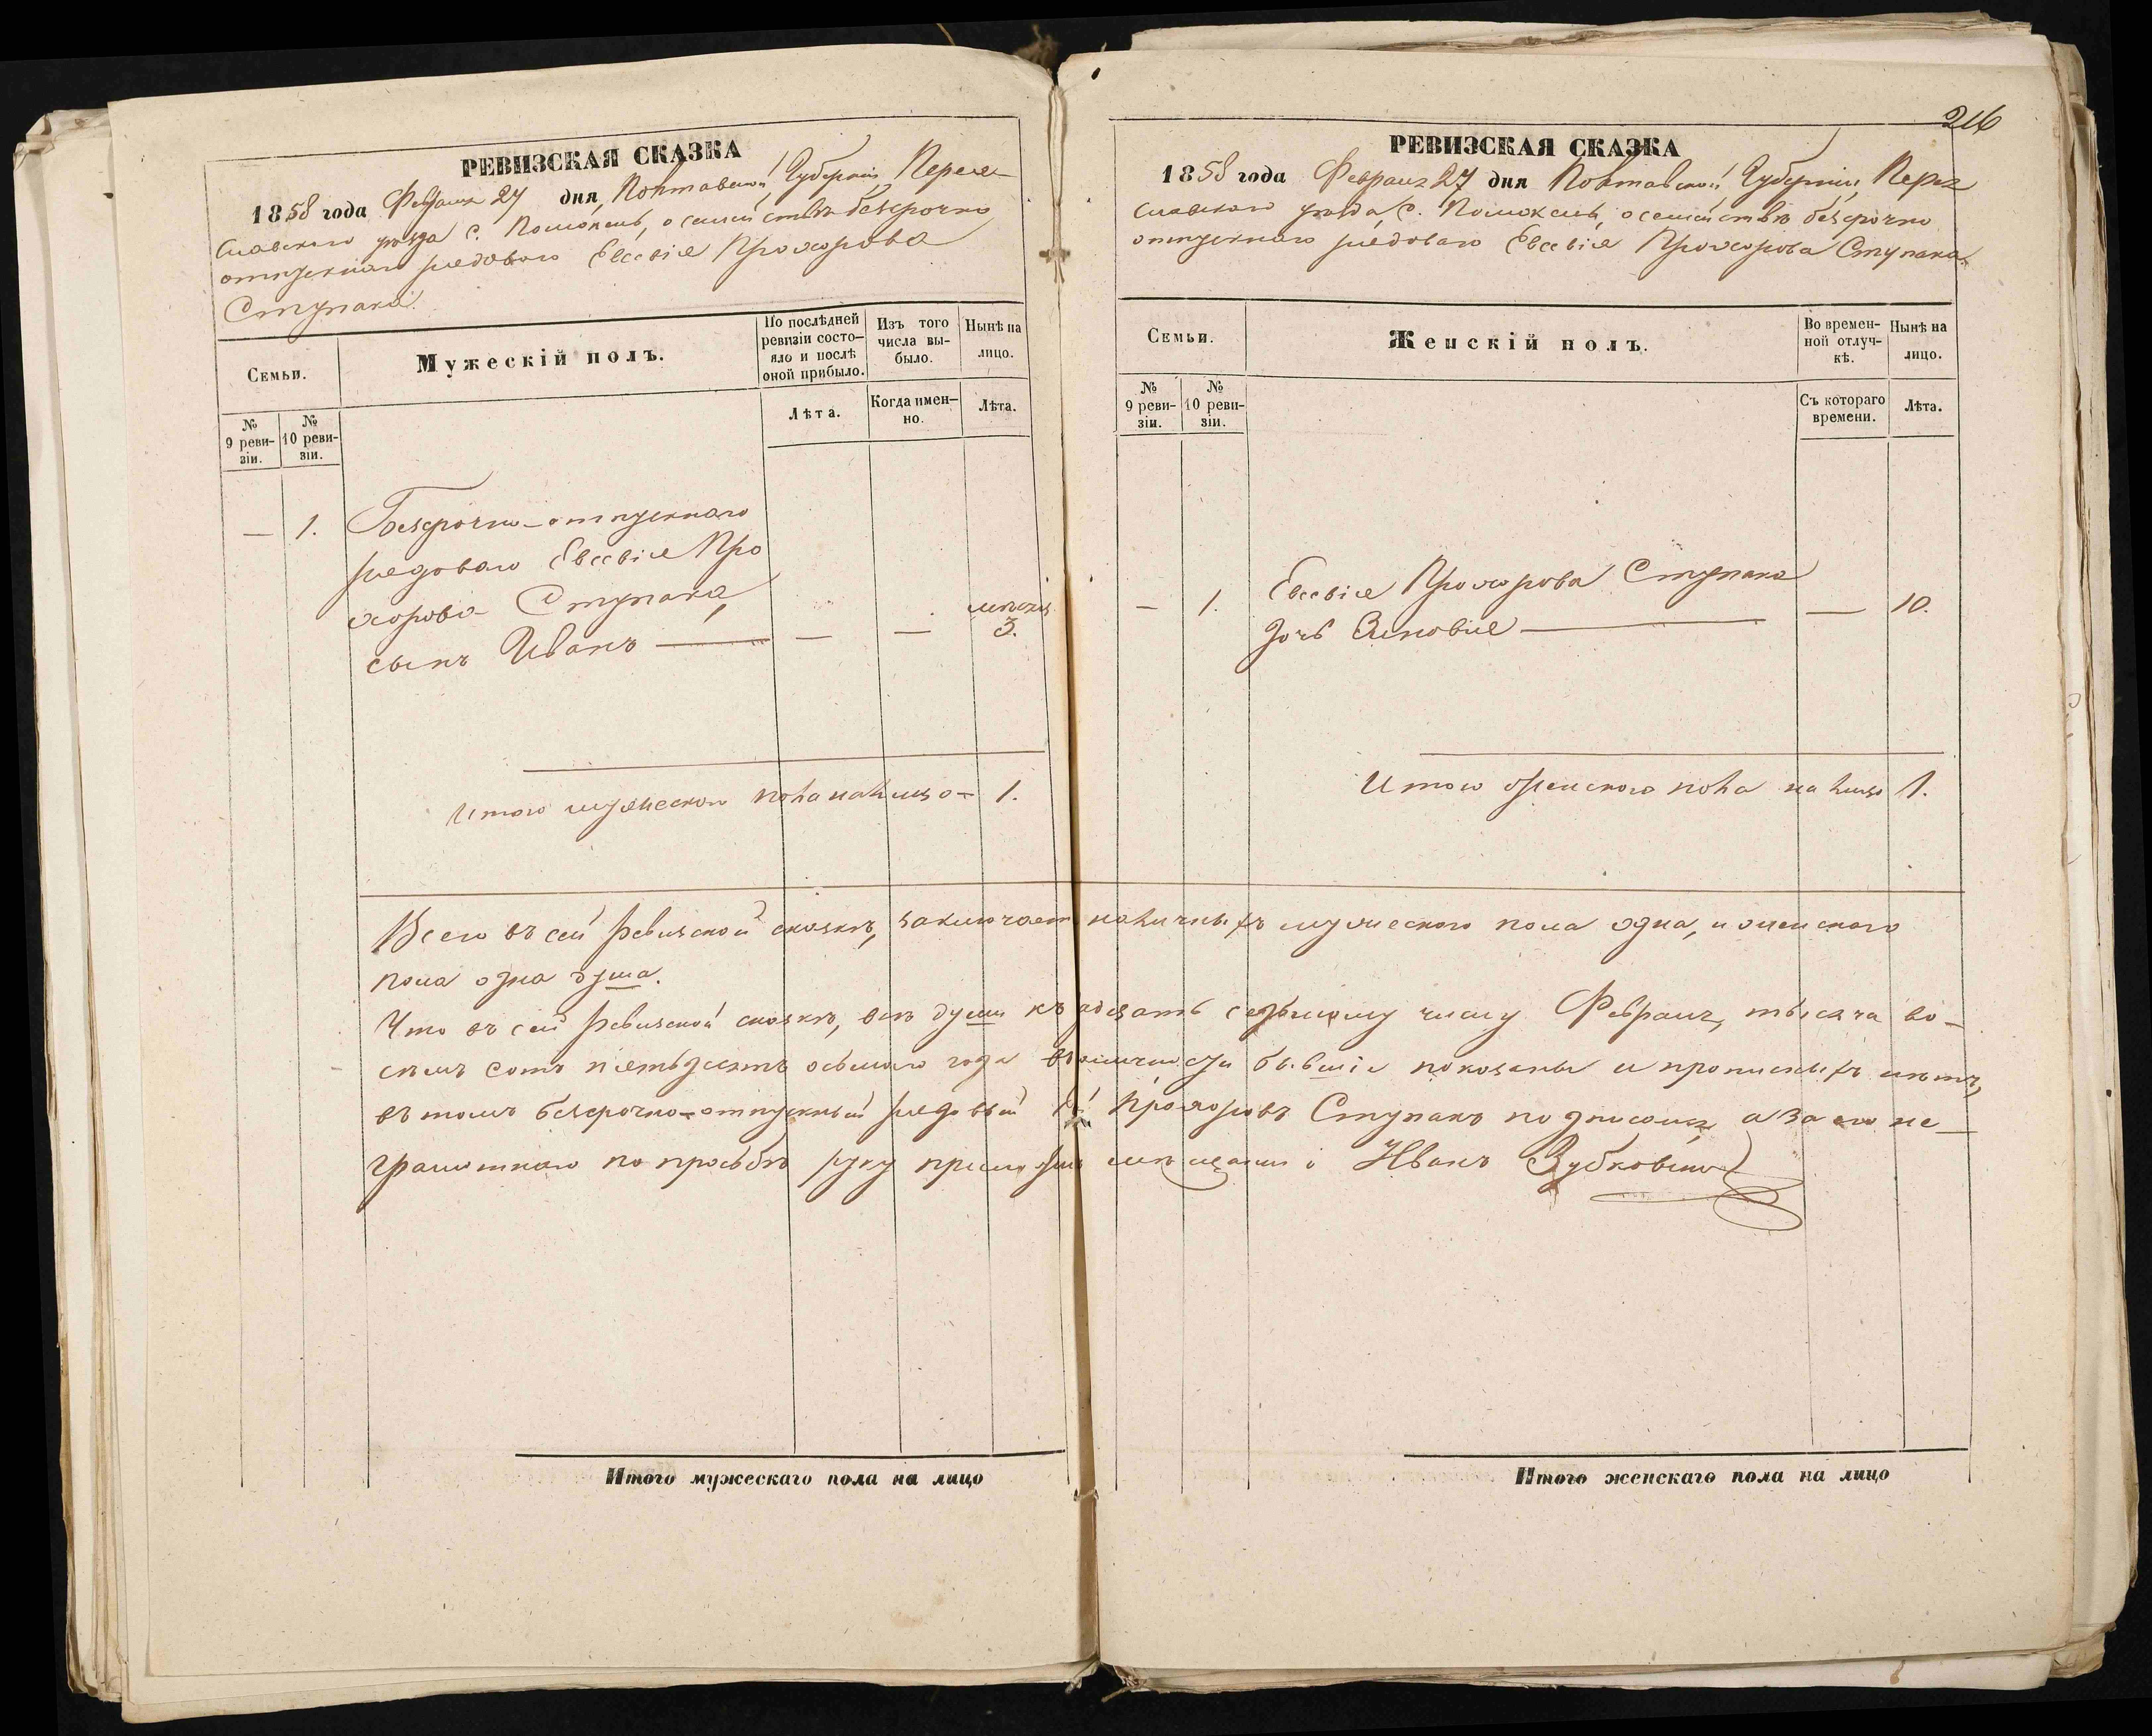 РЕВИЗСКАЯ СКАЗКА
1858 года Февраля 27 дня, Полтавской Губерніи, Перея-
славскаго уѣзда с. Помоклей, о семействѣ безсрочно
отпускнаго рядоваго Евсевія Прохорова
Ступака.
Семьи.
№ 9 ревизіи.
№ 10 ревизіи.
Мужескій полъ.
По послѣдней
ревизіи состо-
яло и послѣ
оной прибыло.
Лѣта.
Изъ того
числа вы-
было.
Когда имен-
но.
Нынѣ на
лицо.
Лѣта.
— 1. Безсрочно-отпускнаго
рядоваго Евсевія Про
хорова Ступака,
сынъ Иванъ — — — мѣсяц. 3.
Итого мужескаго пола на лицо - 1.
216
РЕВИЗСКАЯ СКАЗКА
1858 года Февраля 27 дня Полтавской Губерніи, Перея
славскаго уѣзда, с. Помоклей, о семействѣ безсрочно
отпускнаго рядоваго Евсевія Прохорова Ступака.
Семьи.
№ 9 ревизіи.
№ 10 ревизіи.
Женскій полъ.
Во времен-
ной отлуч-
кѣ.
Съ котораго
времени.
Нынѣ на
лицо.
Лѣта.
— 1. Евсевія Прохорова Ступака
дочь Зиновія — — 10.
Итого женскаго пола на лицо 1.
Всего въ сей ревизской сказкѣ, заключает наличныхъ мужескаго пола одна, и женскаго
пола одна душа.
Что въ сей ревизской сказкѣ, всѣ души къ двадцать седьмому числу Февраля, тысяча во-
семъ сотъ пятьдесятъ осьмаго года въ наличности бывшія показаны и прописныхъ нѣтъ,
въ томъ безсрочно-отпускный рядовый Прохоровъ Ступакъ подписался, а за его не-
грамотнаго по просьбѣ руку приложилъ мѣщанинъ Иванъ Зубковскій
Итого мужескаго пола на лицо
Итого женскаго пола на лицо